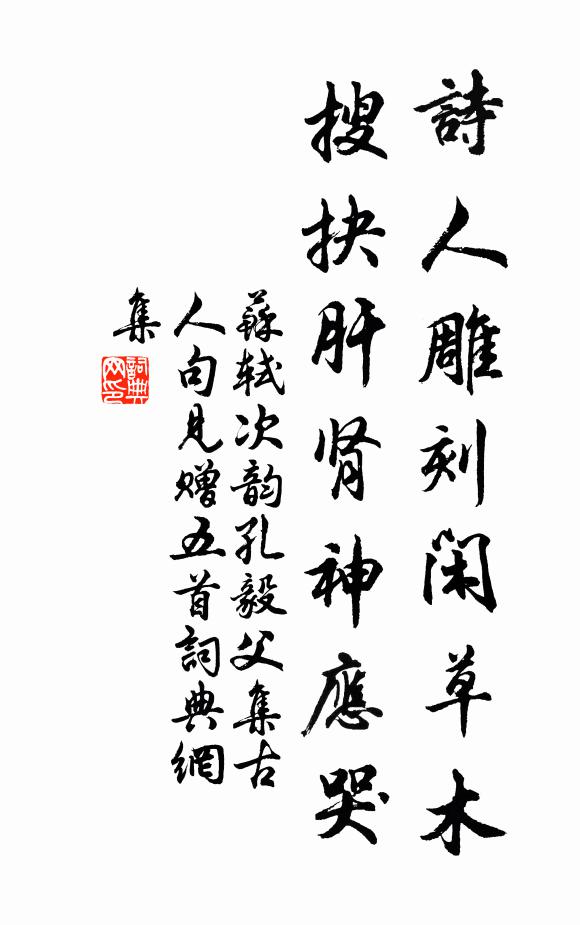 詩人雕刻閑草木
搜抉肝腎神應哭
蘇軾次韵孔毅父集古
人句見贈五首詞典網
集
詞典
网印